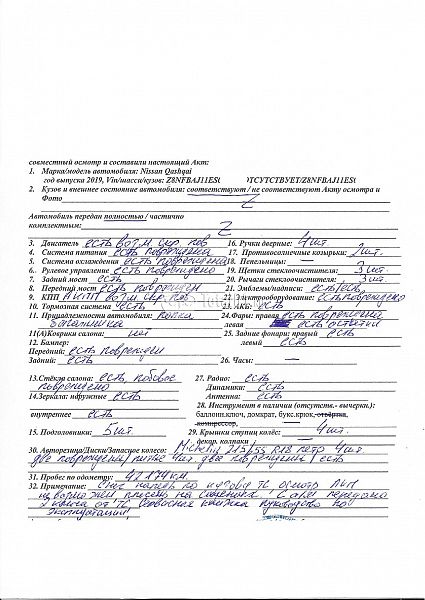 совместный осмотр и составили настоящий Акт:
1. Марка/модель автомобиля: Nissan Qashqai
год выпуска 2019, Vin/шасси/кузов: Z8NFBAJ11ES( )ТСУТСТВУЕТ/Z8NFBAJ11ES(
2. Кузов и внешнее состояние автомобиля: соответствуют / не соответствуют Акту осмотра и
Фото
Автомобиль передан полностью / частично
комплектным:
3. Двигатель есть возм. скр. пов
16. Ручки дверные: 4 шт.
4. Система питания есть повреждена
17. Противосолнечные козырьки: 2 шт.
5. Система охлаждения есть повреждена
18. Пепельницы: —
6. Рулевое управление есть повреждено
19. Щетки стеклоочистителя: 3 шт.
7. Задний мост есть
20. Рычаги стеклоочистителя: 3 шт.
8. Передний мост есть поврежден
21. Эмблемы/надписи: есть/есть
9. КПП АКПП возм. скр. пов.
22. Электрооборудование: есть повреждено
10. Тормозная система есть
23. АКБ: есть
11. Принадлежности автомобиля:
24. Фары: правая есть повреждена
левая есть остатки
11(А) Коврики салона: нет
25. Задние фонари: правый есть
левый есть
12. Бампер:
Передний: есть поврежден
Задний: есть
26. Часы: —
13. Стёкла салона: есть, лобовое
повреждено
27. Радио: есть
Динамики: есть
Антенна: есть
14. Зеркала: наружные есть
внутреннее есть
28. Инструмент в наличии (отсутств.- вычеркн.):
баллонн.ключ, домкрат, букс.крюк, отвёртка,
компрессор,
15. Подголовники: 5 шт.
29. Крышки ступиц колёс: 4 шт.
декор. колпаки —
30. Авторезина/Диски/Запасное колесо: Michelin 215/55 R18 летр 4 шт.
две повреждены/литые 4 шт. два повреждены/есть
31. Пробег по одометру:
32. Примечание: Снег налёд на кузове ТС осмотр ЛКП
невозможен, плесень на сиденьях. Car
2 ключа от ТС Сервисная книжка, руководство по
эксплуатации